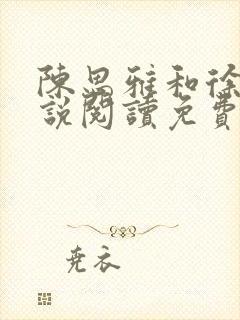 陳思雅和徐
說閱讀免費
堯衣